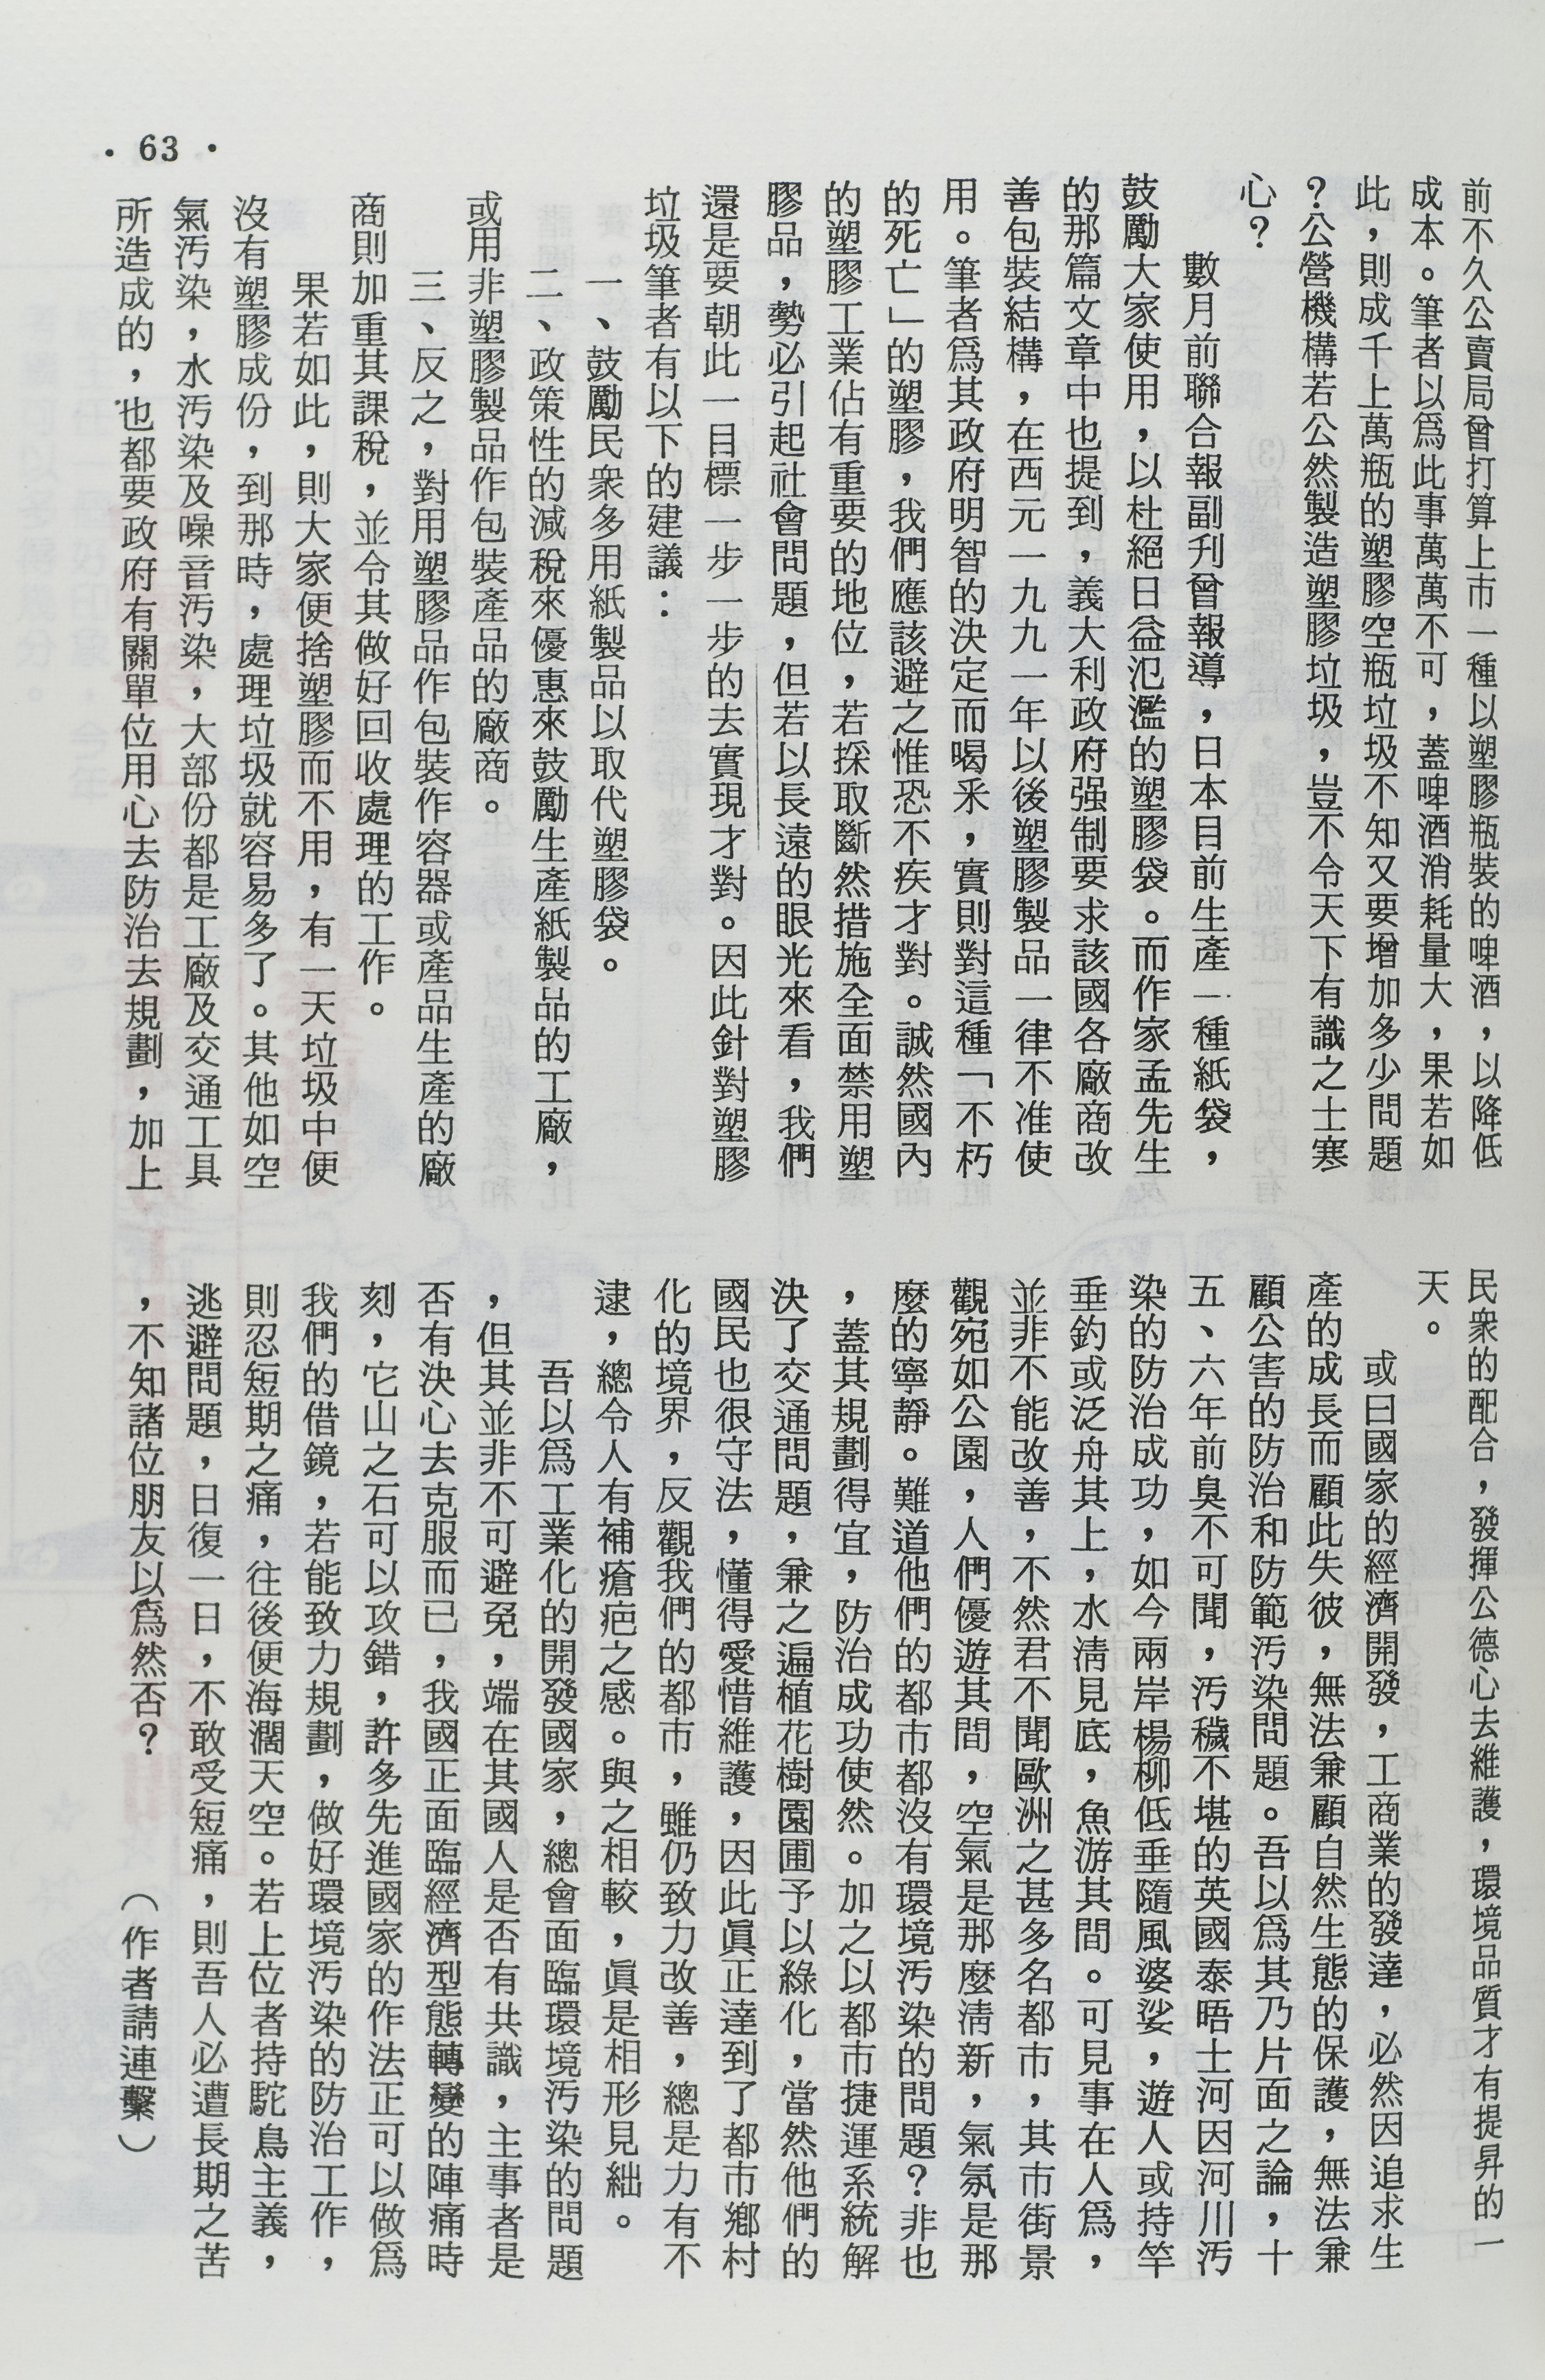 前不久公賣局曾打算上市一種以塑膠瓶裝的啤酒，以降低
成本。筆者以爲此事萬萬不可，蓋啤酒消耗量大，果若如
此，則成千上萬瓶的塑膠空瓶垃圾不知又要增加多少問題
？公營機構若公然製造塑膠垃圾，豈不令天下有識之士寒
心？
數月前聯合報副刋曾報導，日本目前生產一種紙袋，
鼓勵大家使用，以杜絕日益氾濫的塑膠袋。而作家孟先生
的那篇文章中也提到，義大利政府强制要求該國各廠商改
善包裝結構，在西元一九九一年以後塑膠製品一律不准使
用。筆者爲其政府明智的決定而喝釆，實則對這種「不朽
的死亡」的塑膠，我們應該避之惟恐不疾才對。誠然國內
的塑膠工業佔有重要的地位，若採取斷然措施全面禁用塑
膠品，勢必引起社會問題，但若以長遠的眼光來看，我們
還是要朝此一目標一步一步的去實現才對。因此針對塑膠
垃圾筆者有以下的建議：
一、鼓勵民衆多用紙製品以取代塑膠袋。
二、政策性的減稅來優惠來鼓勵生產紙製品的工廠，
或用非塑膠製品作包裝產品的廠商。
三、反之，對用塑膠品作包裝作容器或產品生產的廠
商則加重其課稅，並令其做好回收處理的工作。
果若如此，則大家便捨塑膠而不用，有一天垃圾中便
沒有塑膠成份，到那時，處理垃圾就容易多了。其他如空
氣汚染，水汚染及噪音汚染，大部份都是工廠及交通工具
所造成的，也都要政府有關單位用心去防治去規劃，加上
民衆的配合，發揮公德心去維護，環境品質才有提昇的一
天。
或曰國家的經濟開發，工商業的發達，必然因追求生
產的成長而顧此失彼，無法兼顧自然生態的保護，無法兼
顧公害的防治和防範汚染問題。吾以爲其乃片面之論，十
五、六年前臭不可聞，汚穢不堪的英國泰晤士河因河川汚
染的防治成功，如今兩岸楊柳低垂隨風婆娑，遊人或持竿
垂釣或泛舟其上，水淸見底，魚游其間。可見事在人爲，
並非不能改善，不然君不聞歐洲之甚多名都市，其市街景
觀宛如公園，人們優遊其間，空氣是那麼淸新，氣氛是那
麼的寧靜。難道他們的都市都沒有環境汚染的問題？非也
，蓋其規劃得宜，防治成功使然。加之以都市捷運系統解
決了交通問題，兼之遍植花樹園圃予以綠化，當然他們的
國民也很守法，懂得愛惜維護，因此眞正達到了都市鄉村
化的境界，反觀我們的都市，雖仍致力改善，總是力有不
逮，總令人有補瘡疤之感。與之相較，眞是相形見絀。
吾以爲工業化的開發國家，總會面臨環境汚染的問題
，但其並非不可避免，端在其國人是否有共識，主事者是
否有決心去克服而已，我國正面臨經濟型態轉變的陣痛時
刻，它山之石可以攻錯，許多先進國家的作法正可以做爲
我們的借鏡，若能致力規劃，做好環境汚染的防治工作，
則忍短期之痛，往後便海濶天空。若上位者持駝鳥主義，
逃避問題，日復一日，不敢受短痛，則吾人必遭長期之苦
，不知諸位朋友以爲然否？（作者請連繫）
· 63 ·